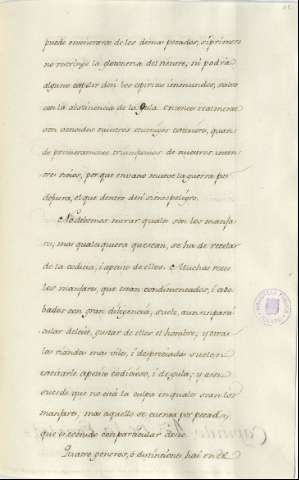 puede enseñorarse de los demas pecados, si primero
no restringe la glotoneria del vientre, ni podria
alguno expelir deni los espiritus inmundos, salvo
con la abstinencia de la Gula. Entonces realmente
son vencidos nuestros enemigos exteriores, quan-
do primeramente triunfamos de nuestros
nios, porque en vano mueve la guerra por
defuera, el que dentro deni tiene peligro.
No debemos mirar quales son los manja-
res; mas qualesquiera que sean, se ha de recelar
de la codicia, i apetito de ellos. Muchas veces
los manjares, que eran condimentados, i
bados con gran diligencia, suele, aun sin parti-
cular deleite, gustar de ellos el hombre; y otras
las viandas mas viles, i despreciadas suelen
causarle apetito codicioso, i de gula; y asi
sucede que no está la culpa en quales sean los
manjares, mas aquello se cuenta por pecado,
que es comido con particular deseo.
Quatro generos, ó distinciones hai en el